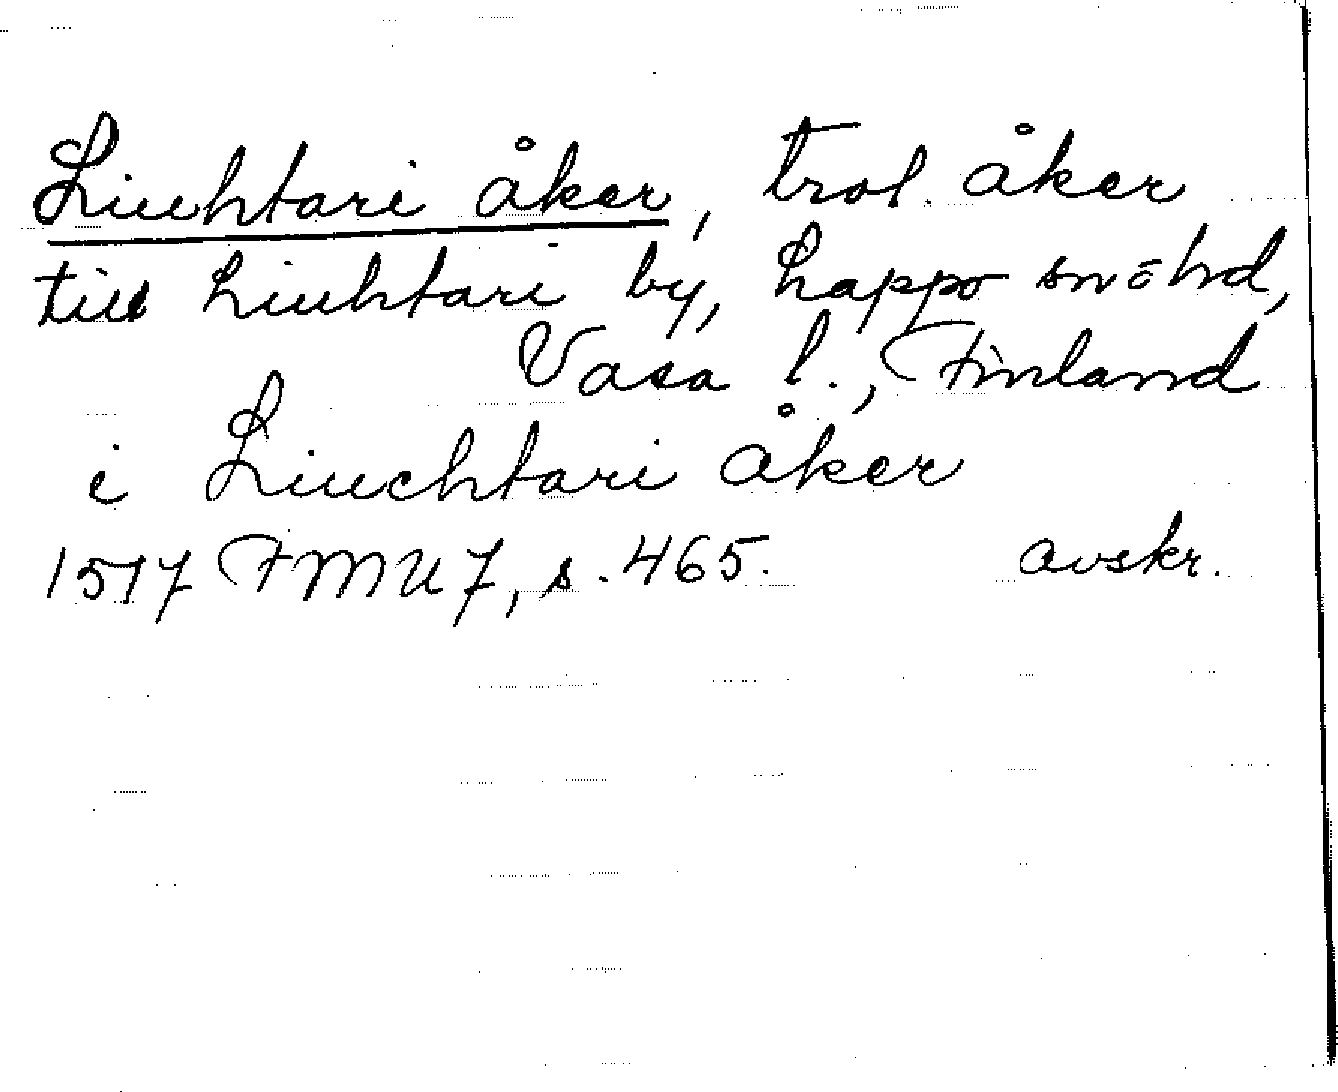 Liuhtari åker, trol. åker
till Liuhtari by, Lappo sn o hd,
Vasa l., Finland
i Liuchtari åker
1517 FMU 7, s. 465. avskr.